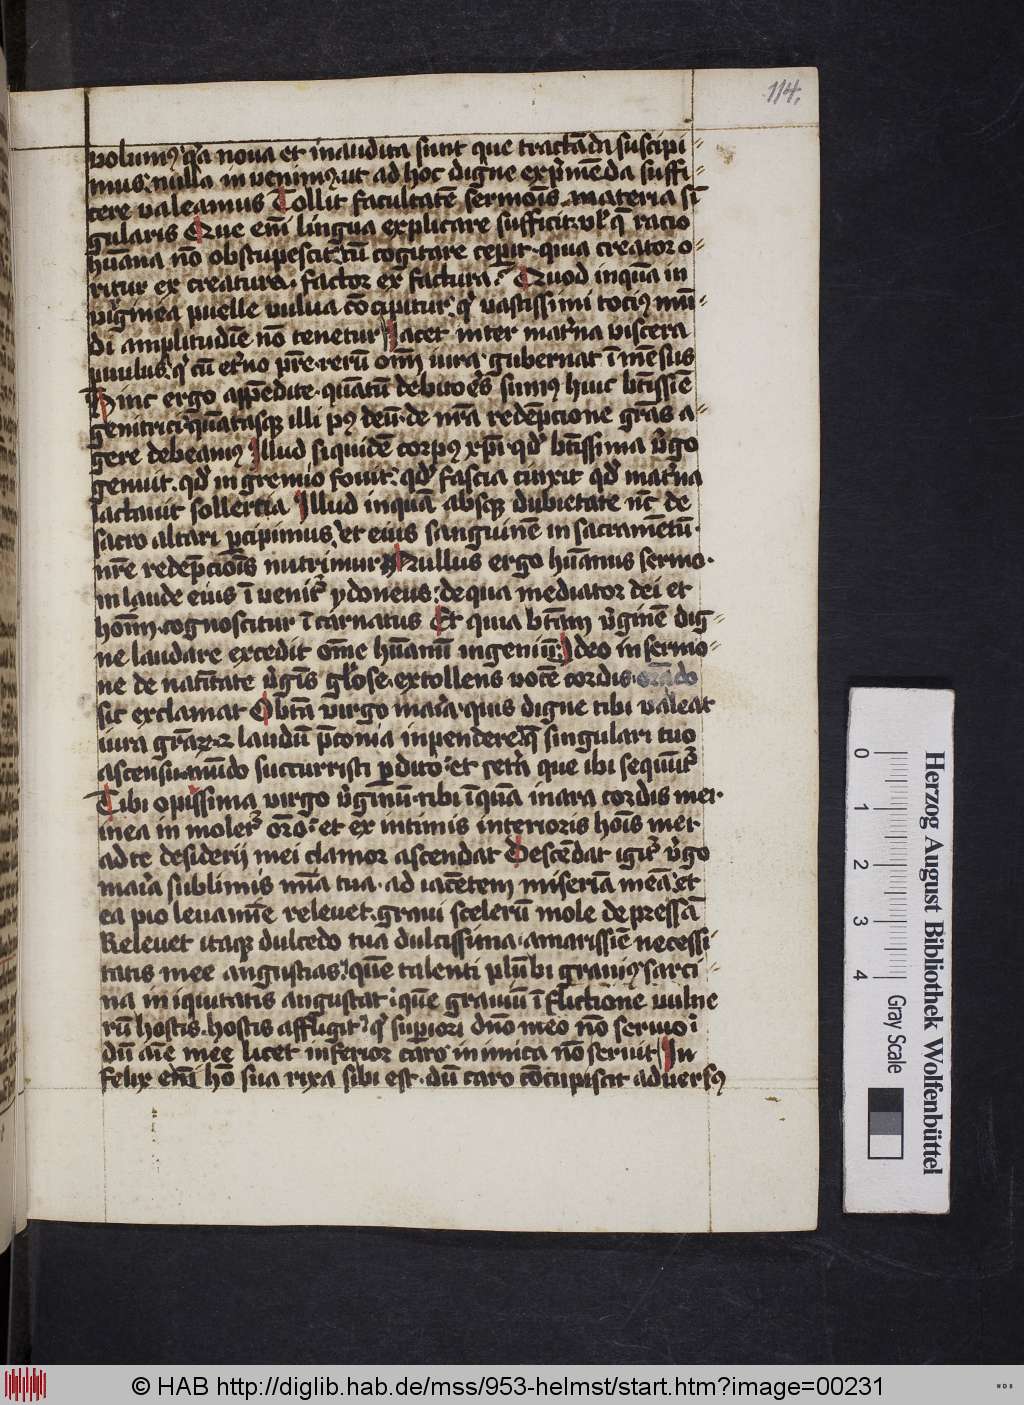 114.
volumꝯ qͥa noua et inaudita sunt que tractāda suscipi⸗
mus. nulla inuenimꝯ. ut ad hoc digne exprͥmēda suffi⸗
cere valeamus Tollit facultatē sermoīs. materia sī
gularis Que eni᷒ lingua explicare sufficit. vl̕ q̄ racio
hūana nō obstupescit. cū cogitare ceperit. quia creator o⸗
ritur ex creatura. factor ex factura. Quod inquā in
vͥrginea puelle vulua cōcipitur. qͥ vastissimi tociꝯ mū⸗
di amplitudīe nō tenetur Iacet inter matͥna viscera
puulus. qͥ cū etͥno pr̄e. rerū om̄i iura gubernat īmēsus
Hinc ergo appēdite. quātū debitores sumꝯ huic btīssīe
genitrici. quātasqꝫ illi pꝯ deū. de nr̄a redēpcione grās a⸗
gere debeamꝯ Illud siquidē corpꝯ xpī. qd̕ btīssima vͥgo
genuit. qd̕ in gremio fouit. qd̕ fascia cinxit qd̕ matͥna
lactauit sollercia Illud inquā absqꝫ dubietate nc̄ de
sacro altari p̱cipimus, et eius sanguinē in sacramētū.
nr̄e redēpcioīs nutrimur Nullus ergo hūanus sermo.
in laude eius īuenitͬ ydoneus. de qua mediator dei et
hoīm. cognoscitur īcarnatus Et quia btām vͥginē dig⸗
ne laudare excedit om̄e hūanū ingeniū. Ideo in sermo⸗
ne de natīitate vͥgīs gl̕ose. extollens vocē cordis. orādo
sic exclamat O btā virgo maīa. quis digne tibi valeat
iura grāꝝ. ⁊ laudū p̄conia inpendere. q̄ singulari tuo
ascensu. mūdo succurristi p̱dito. et cetͥa que ibi sequūtͬ
Tibi o piissima virgo vͥginū. tibi īquā in ara cordis mei.
inea in moletͬ orō. et ex intimis interioris hoīs mei
ad te desiderij mei clamor ascendat Descēdat igitͬ vͥgo
maīa sublimis mīa tua. ad iacētem miseriā meā. et
ea pio leuamīe releuet. graui scelerū mole depressā
Releuet itaqꝫ dulcedo tua dulcissima. amarissīe necessi
tatis mee angustias. quē talenti plūbi grauiꝯ sarci⸗
na iniquitatis angustat. quē grauiū īflictione vulne
rū hostis. hostis affligit. qͥ supiori dn̄o meo nō seruio. ī
dū aīe mee licet inferior caro inimica nō seruit In
felix eni᷒ hō sua rixa sibi est. dū caro cōcupiscit aduersꝯ
Herzog August Bibliothek Wolfenbüttel
0 1 2 3 4
Gray Scale
© HAB http://diglib.hab.de/mss/953-helmst/start.htm?image=00231